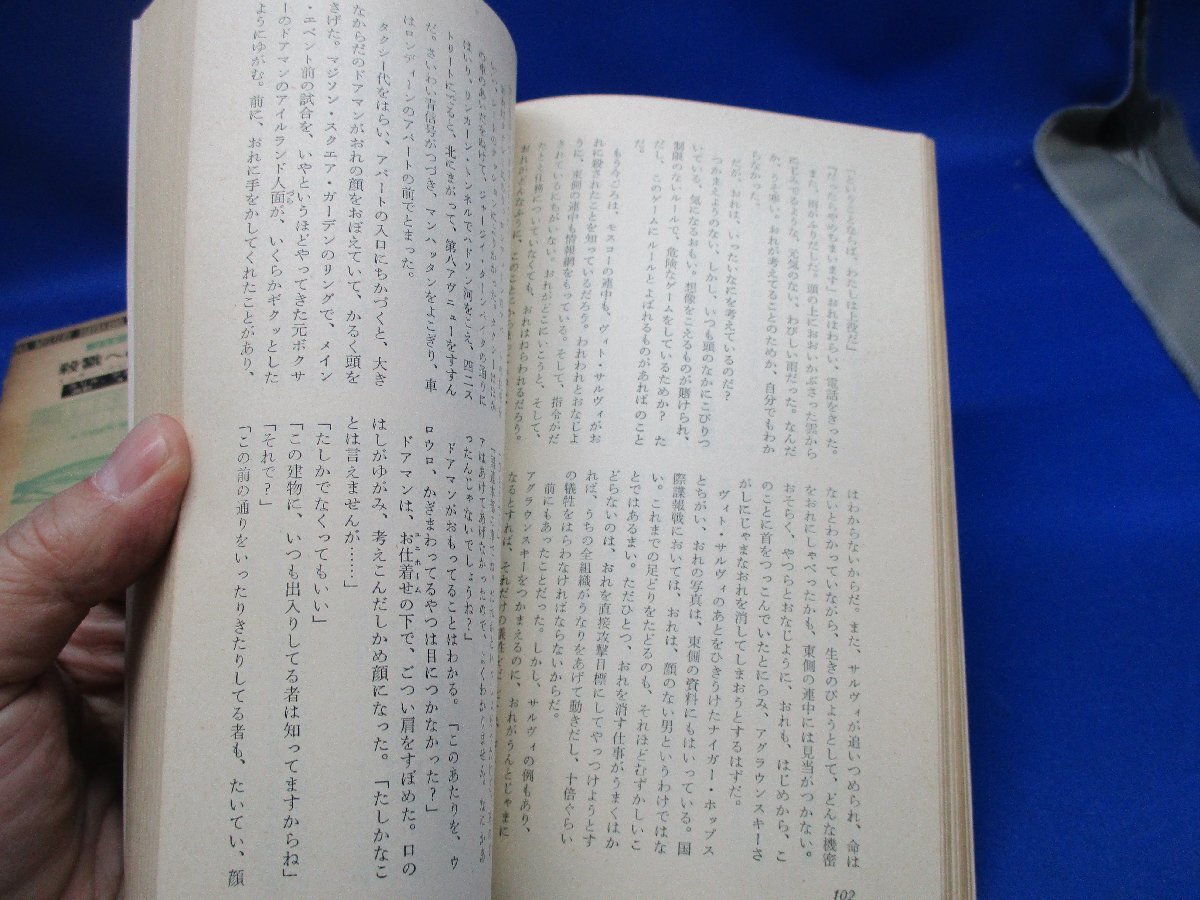 「だったらやめちまいます」おれはわらい、電話をきった。
また、雨がふりだした。頭の上におおいかぶさった雲から
にじみでるような、元気のない、わびしい雨だった。なんだ
か、うそ寒い。おれが考えてることのためか、自分でもわか
らなかった。
だが、おれは、いったいなにを考えているのだ?
つかまえようのない、しかし、いつも頭のなかにこびりつ
いている、気になるおもい。想像をこえるものが賭けられ、
制限のないルールで、危険なゲームをしているためか? た
だし、このゲームにルールとよばれるものがあれば のこと
だ。
もう今ごろは、モスコーの連中も、ヴィト・サルヴィがお
れに殺されたことを知っているだろう。われわれとおなじよ
うに、東側の連中も情報網をもっている。そして、指令がだ
されているにちがいない。おれがどこにいこうと、そして、
たとえ仕務についていなくても、おれはねらわれるだろう。
はわからないからだ。また、サルヴィが追いつめられ、命は
ないとわかっていながら、生きのびようとして、どんな機密
をおれにしゃべったかも、東側の連中には見当がつかない。
おそらく、やつらとおなじように、おれも、はじめから、こ
のことに首をつっこんでいたとにらみ、アグラウンスキーさ
がしにじゃまなおれを消してしまおうとするはずだ。
ヴィト・サルヴィのあとをひきうけたナイガー・ホップス
とちがい、おれの写真は、東側の資料にもはいっている。国
際諜報戦においては、おれは、顔のない男というわけではな
い。これまでの足どりをたどるのも、それほどむずかしいこ
とではあるまい。ただひとつ、おれを消す仕事がうまくはか
どらないのは、おれを直接攻撃目標にしてやっつけようとす
れば、うちの全組織がうなりをあげて動きだし、十倍ぐらい
の犠牲をはらわなければならないからだ。
前にもあったことだった。しかし、サルヴィの例もあり、
アグラウンスキーをつかまえるのに、おれがうんとじゃまに
なるとすれば、それだけの犠牲を
102
の車のあいだをぬけて、ジャージイ・ターンパイクの通りに
はいり、リンカーン・トンネルでハドソン河をこえ、四二ス
トリートにでると、北にまがって、第八アヴニューをすすん
だ。さいわい青信号がつづき、マンハッタンをよこぎり、車
はロンディーンのアパートの前でとまった。
タクシー代をはらい、アパートの入口にちかづくと、大き
なからだのドアマンがおれの顔をおぼえていて、かるく頭を
さげた。マジソン・スクエア・ガーデンのリングで、メイン
・エベント前の試合を、いやというほどやってきた元ボクサ
ーのドアマンのアイルランド人面が、いくらかギクッとした
づら
ようにゆがむ。前に、おれに手をかしてくれたことがあり、
ったんじゃないでしょうね?」
ドアマンがおもってることはわかる。「このあたりを、ウ
ロウロ、かぎまわってるやつは目につかなかった?」
ドアマンは、お仕着せの下で、ごつい肩をすぼめた。口の
ユニホーム
はしがゆがみ、考えこんだしかめ顔になった。「たしかなこ
とは言えませんが……」
「たしかでなくってもいい」
「この建物に、いつも出入りしてる者は知ってますからね」
「それで?」
「この前の通りをいったりきたりしてる者も、たいてい、顔